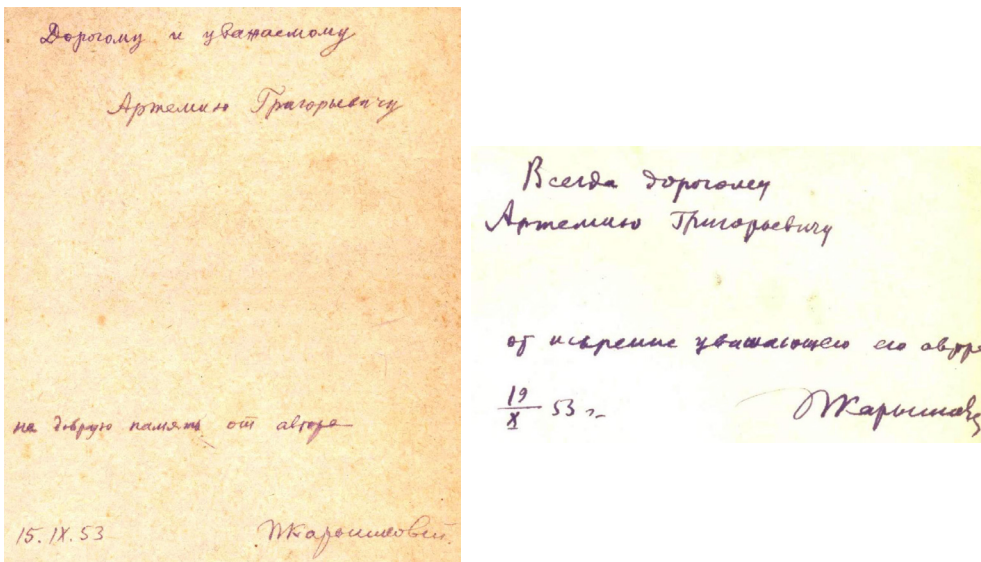 Дорогому и уважаемому
Артемию Григорьевичу
на добрую память от автора
15.IX.53 ПКарышковский
Всегда дорогому
Артемию Григорьевичу
от искренне уважающего его автора
19/X 53 г.